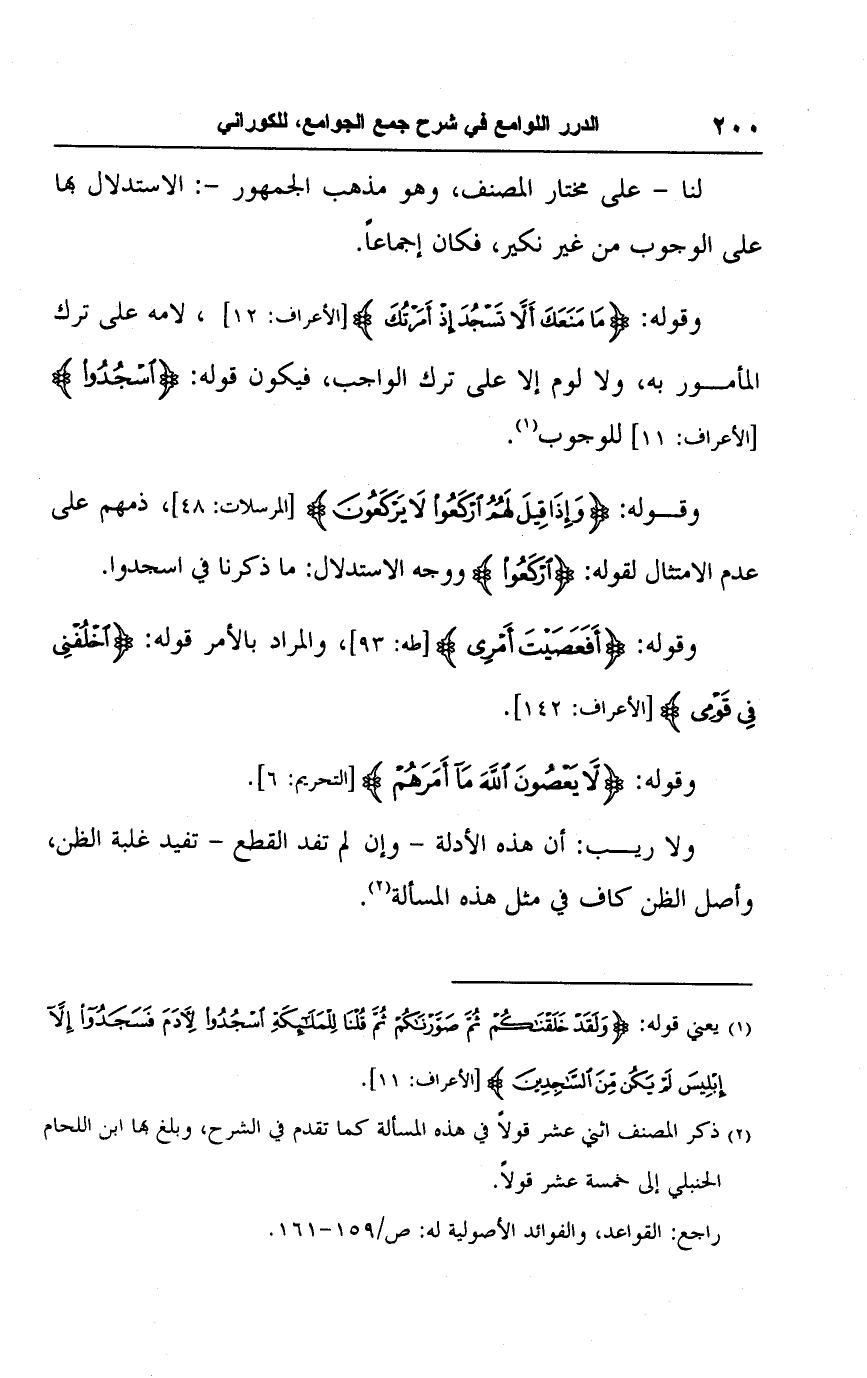 ٢٠٠ الدرر اللوامع في شرح جمع الجوامع، للكوراني
لنا – على مختار المصنف، وهو مذهب الجمهور –: الاستدلال بها
على الوجوب من غير نكير، فكان إجماعاً.
وقوله: ﴿مَا مَنَعَكَ أَلَّا تَسْجُدَ إِذْ أَمَرْتُكَ﴾ [الأعراف: ١٢] ، لامه على ترك
المأمـــور به، ولا لوم إلا على ترك الواجب، فيكون قوله: ﴿ٱسْجُدُوا۟﴾
[الأعراف: ١١] للوجوب(١).
وقـــوله: ﴿وَإِذَا قِيلَ لَهُمُ ٱرْكَعُوا۟ لَا يَرْكَعُونَ﴾ [المرسلات: ٤٨]، ذمهم على
عدم الامتثال لقوله: ﴿ٱرْكَعُوا۟﴾ ووجه الاستدلال: ما ذكرنا في اسجدوا.
وقوله: ﴿أَفَعَصَيْتَ أَمْرِى﴾ [طه: ٩٣]، والمراد بالأمر قوله: ﴿ٱخْلُفْنِى
فِى قَوْمِى﴾ [الأعراف: ١٤٢].
وقوله: ﴿لَّا يَعْصُونَ ٱللَّهَ مَآ أَمَرَهُمْ﴾ [التحريم: ٦].
ولا ريـــب: أن هذه الأدلة – وإن لم تفد القطع – تفيد غلبة الظن،
وأصل الظن كاف في مثل هذه المسألة(٢).
(١) يعني قوله: ﴿وَلَقَدْ خَلَقْنَٰكُمْ ثُمَّ صَوَّرْنَٰكُمْ ثُمَّ قُلْنَا لِلْمَلَٰٓئِكَةِ ٱسْجُدُوا۟ لِءَادَمَ فَسَجَدُوٓا۟ إِلَّآ
إِبْلِيسَ لَمْ يَكُن مِّنَ ٱلسَّٰجِدِينَ﴾ [الأعراف: ١١].
(٢) ذكر المصنف اثني عشر قولاً في هذه المسألة كما تقدم في الشرح، وبلغ بها ابن اللحام
الحنبلي إلى خمسة عشر قولاً.
راجع: القواعد، والفوائد الأصولية له: ص/١٥٩–١٦١.